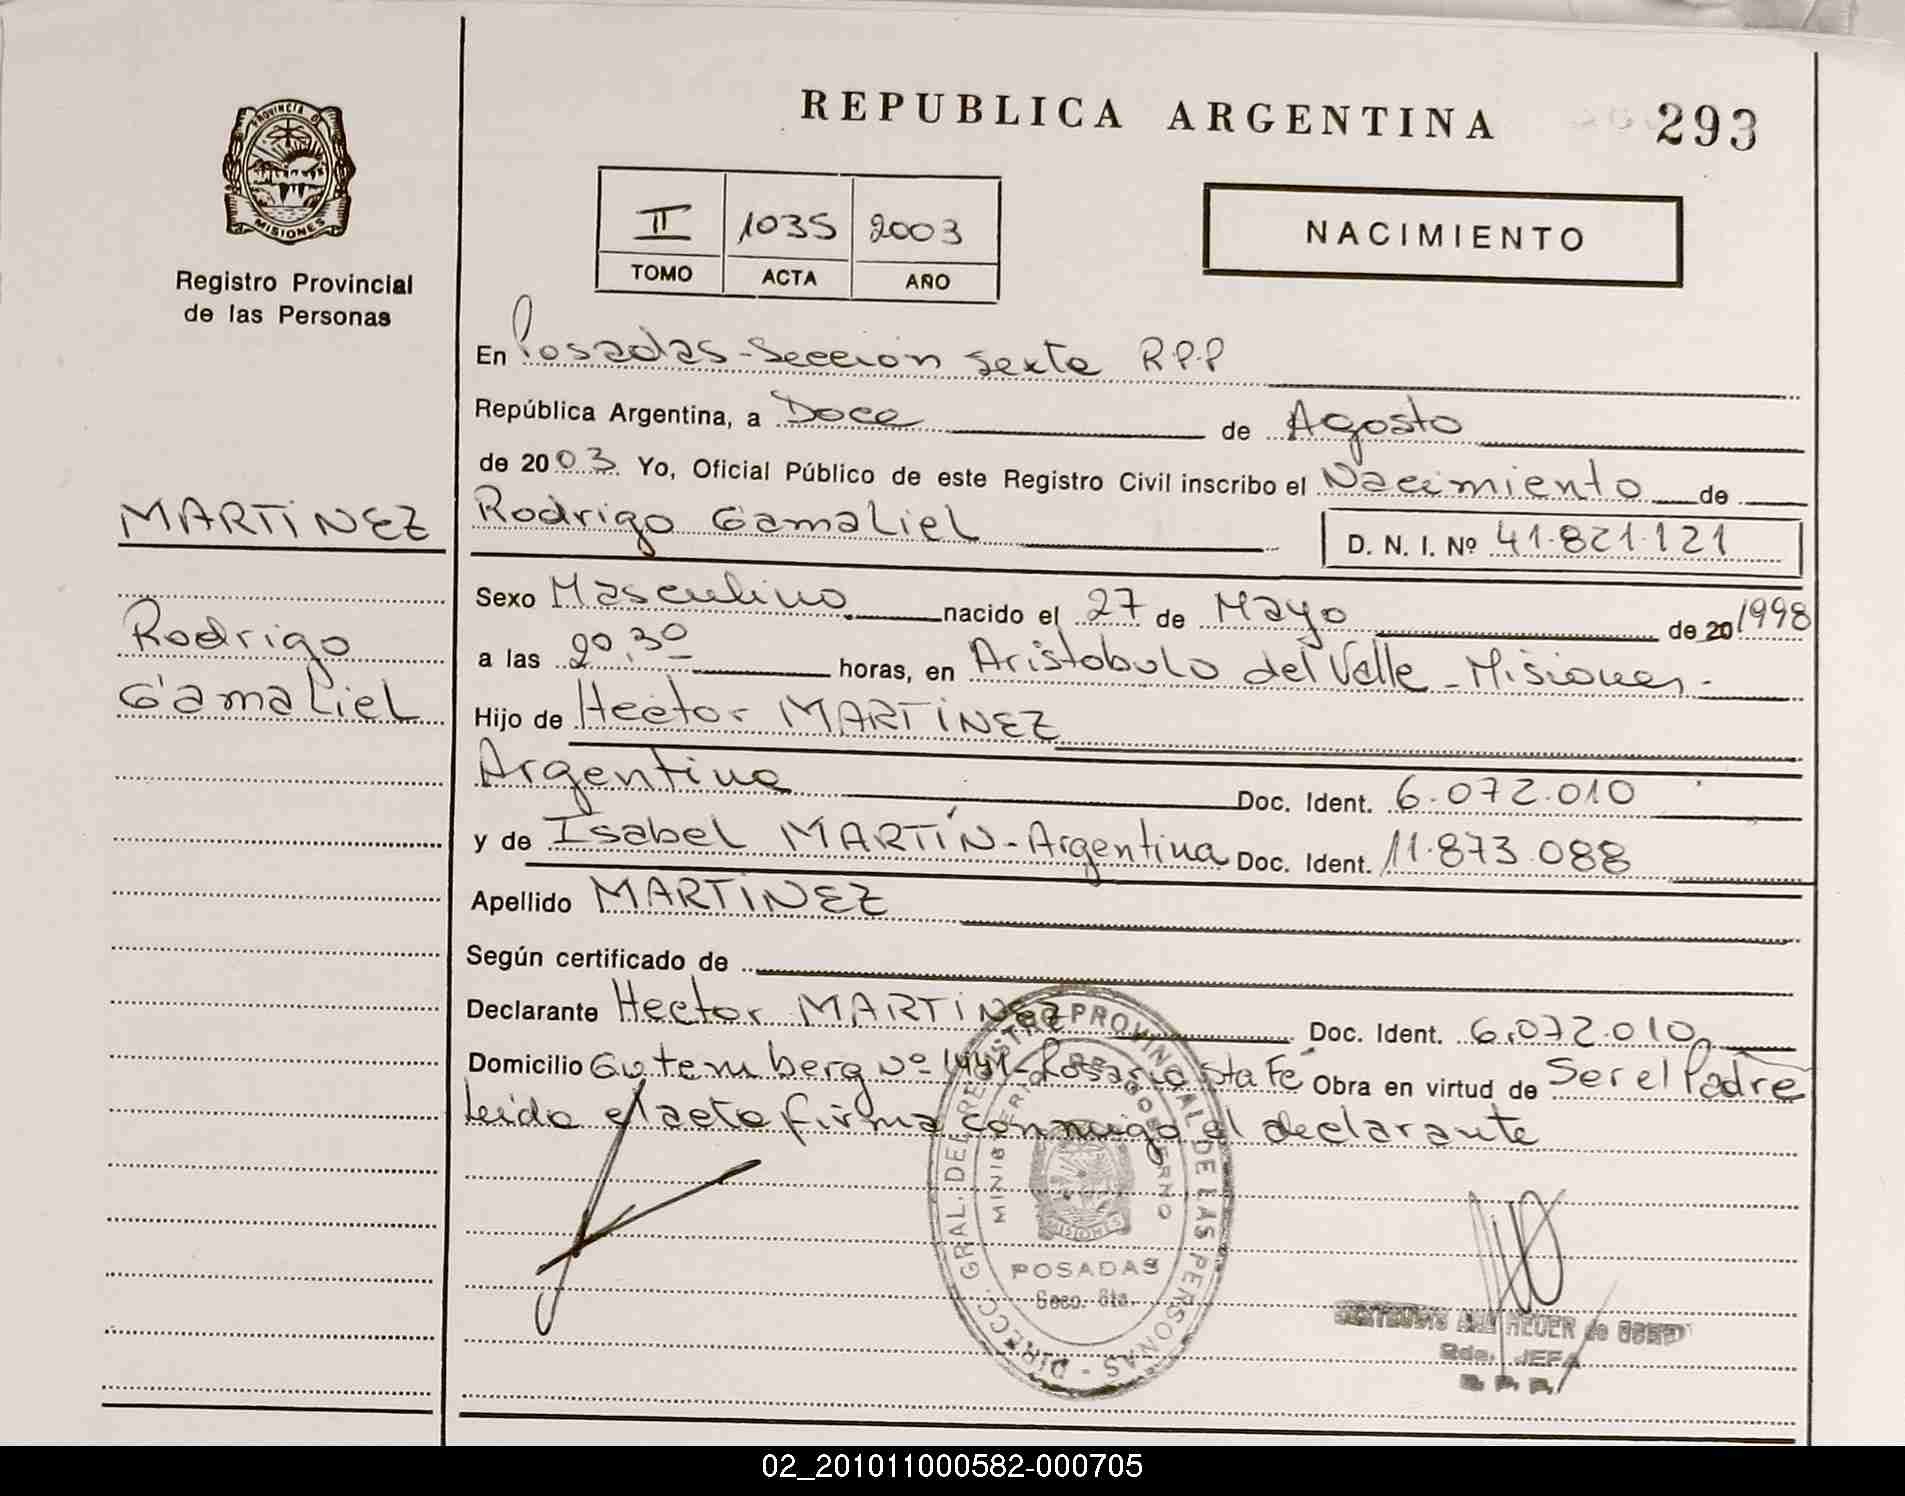 REPUBLICA ARGENTINA
293
PROVINCIA D
MISIONES
Registro Provincial
de las Personas
II 1035 2003
TOMO ACTA AÑO
NACIMIENTO
En Posadas-Seccion Sexta R.P.P
República Argentina, a Doce de Agosto
de 2003 Yo, Oficial Público de este Registro Civil inscribo el Nacimiento de
MARTINEZ
Rodrigo Gamaliel
D. N. I. Nº 41.821.121
Rodrigo
Gamaliel
Sexo Masculino nacido el 27 de Mayo de 20 1998
a las 20,30 horas, en Aristobulo del Valle - Misiones.
Hijo de Hector MARTINEZ
Argentina Doc. Ident. 6.072.010
y de Isabel MARTÍN-Argentina Doc. Ident. 11.873.088
Apellido MARTINEZ
Según certificado de
Declarante Hector MARTINEZ Doc. Ident. 6.072.010
Domicilio Gutemberg Nº 1441-Rosario Sta Fé Obra en virtud de Ser el Padre
Leida el acta firma conmigo el declarante
DIRECC. GRAL. DEL REGISTRO PROVINCIAL DE LAS PERSONAS
MINISTERIO DE GOBIERNO
MISIONES
POSADAS
Secc. 6ta.
HEUER de
JEFA
R. P. P.
02_201011000582-000705